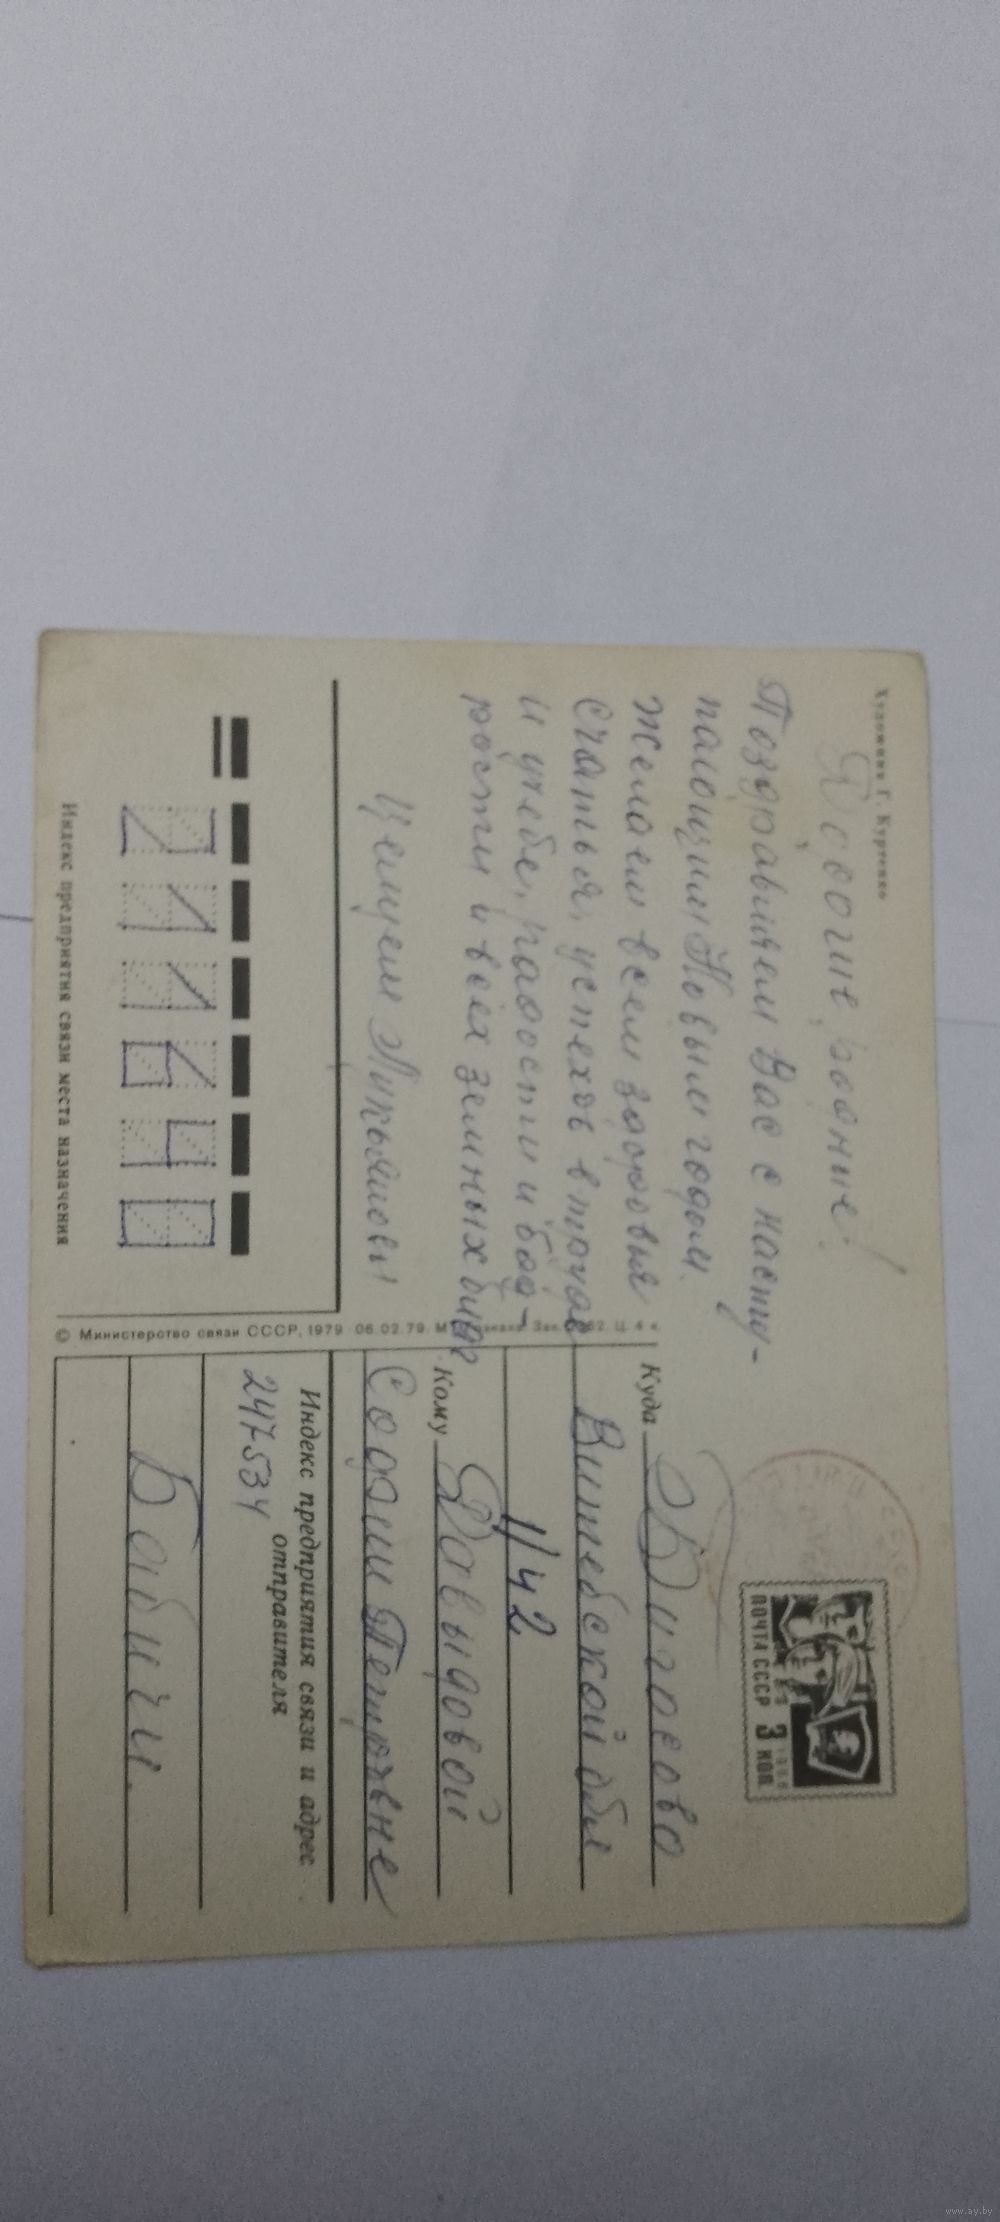 Художник Г. Куртенко
Дорогие родные!
Поздравляем Вас с насту-
пающим Новым годом.
Желаем всем здоровья
счастья, успехов в труде
и учебе, радости и бод-
рости и всех земных благ
Целуем Лукьяновы
Индекс предприятия связи места назначения
© Министерство связи СССР, 1979 06.02.79. Зак. Ц. 4 к.
ПОЧТА СССР 3 КОП.
1966
Куда
Витебской обл
1/42
Кому Давыдовой
Софии Петровне
Индекс предприятия связи и адрес
отправителя
247534
Бабичи.
www.ay.by